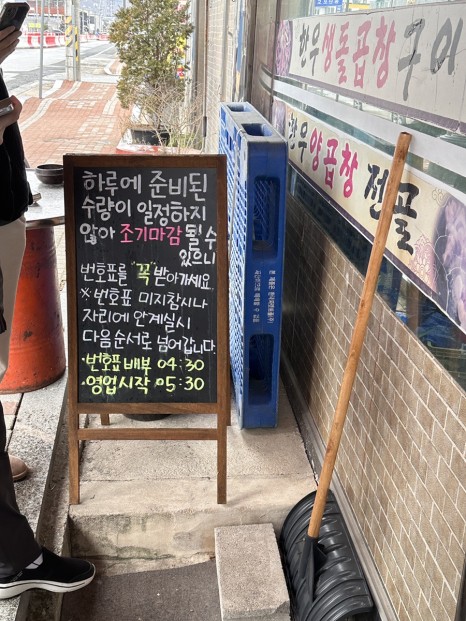 하루에 준비된
수량이 일정하지
않아 조기마감 될 수
있으니
번호표를 "꼭" 받아가세요.
※번호표 미지참시나
자리에 안계실시
다음순서로 넘어갑니다.
·번호표 배부 04:30
·영업시작 05:30
한우생돌곱창구이
한우양곱창전골